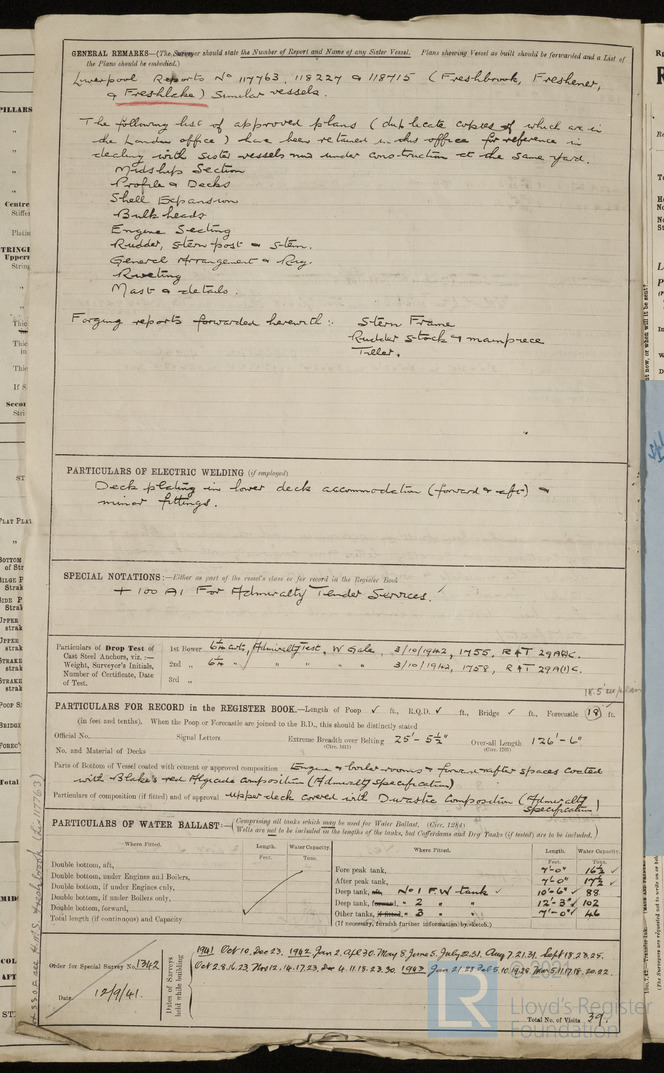 GENERAL REMARKS—(The Surveyor should state the Number of Report and Name of any Sister Vessel. Plans shewing Vessel as built should be forwarded and a List of
the Plans should be embodied.)
Liverpool Reports No 117763, 118227 & 118715 (Freshbrook, Freshener,
& Freshlake) Similar vessels.
The following list of approved plans (duplicate copies of which are in
the London office) have been retained in this office for reference in
dealing with sister vessels now under construction at the same yard.
Midship Section
Profile & Decks
Shell Expansion
Bulkheads
Engine Seating
Rudder, Stern post & Stem.
General Arrangement & Rig.
Riveting
Mast & details.
Forging reports forwarded herewith:- Stern Frame
Rudder stock & mainpiece
Tiller.
PARTICULARS OF ELECTRIC WELDING (if employed)
Deck plating in lower deck accommodation (forward & aft) &
minor fittings.
SPECIAL NOTATIONS:—Either as part of the vessel's class or for record in the Register Book
+ 100 A1 For Admiralty Tender Services.
Particulars of Drop Test of Cast Steel Anchors, viz.:— Weight, Surveyor's Initials, Number of Certificate, Date of Test.
1st Bower 6¼ cwts, Admiralty Test, W Gale, 3/10/1942, 1755, R & T 29A(1)C.
2nd " 6¼ " " " " " 3/10/1942, 1758, R & T 29A(1)C.
3rd "
PARTICULARS FOR RECORD in the REGISTER BOOK.—Length of Poop ✓ ft., R.Q.D. ✓ ft., Bridge ✓ ft., Forecastle (18) ft.
(in feet and tenths). When the Poop or Forecastle are joined to the B.D., this should be distinctly stated
Official No. Signal Letters Extreme Breadth over Belting 25'-5½" Over-all Length 126'-6"
(Circ. 1611) (Circ. 1703)
No. and Material of Decks
Parts of Bottom of Vessel coated with cement or approved composition Engine & boiler rooms & forward & after spaces coated
with Blake's red Algicide Composition (Admiralty specification)
Particulars of composition (if fitted) and of approval upper deck covered with Durastic Composition (Admiralty
specification)
PARTICULARS OF WATER BALLAST:—(Comprising all tanks which may be used for Water Ballast. (Circ. 1284)
Wells are not to be included in the lengths of the tanks, but Cofferdams and Dry Tanks (if tested) are to be included.)
Where Fitted. Length. Water Capacity. Where Fitted. Length. Water Capacity.
Feet. Tons. Feet. Tons.
Double bottom, aft,
Double bottom, under Engines and Boilers,
Double bottom, if under Engines only,
Double bottom, if under Boilers only,
Double bottom, forward,
Total length (if continuous) and Capacity
Fore peak tank, 7'-0" 16½ ✓
After peak tank, 7'-0" 17½ ✓
Deep tank, aft, No 1 F.W tank ✓ 10'-6" ✓ 88
Deep tank, forward, " 2 " 12'-3" ✓ 102
Other tanks, if fitted, " 3 " 7'-0" ✓ 46
(If necessary, furnish further information by sketch.)
Order for Special Survey No. 1342
Date 12/9/41.
Dates of Surveys held while building
1941 Oct 10, Dec 23, 1942 Jan 2, Apl 30, May 8, June 5, July 22.31, Aug 7.21.31, Sept 18.23.25.
Total No. of Visits 39.
© 2021
Lloyd's Register
Foundation
LR